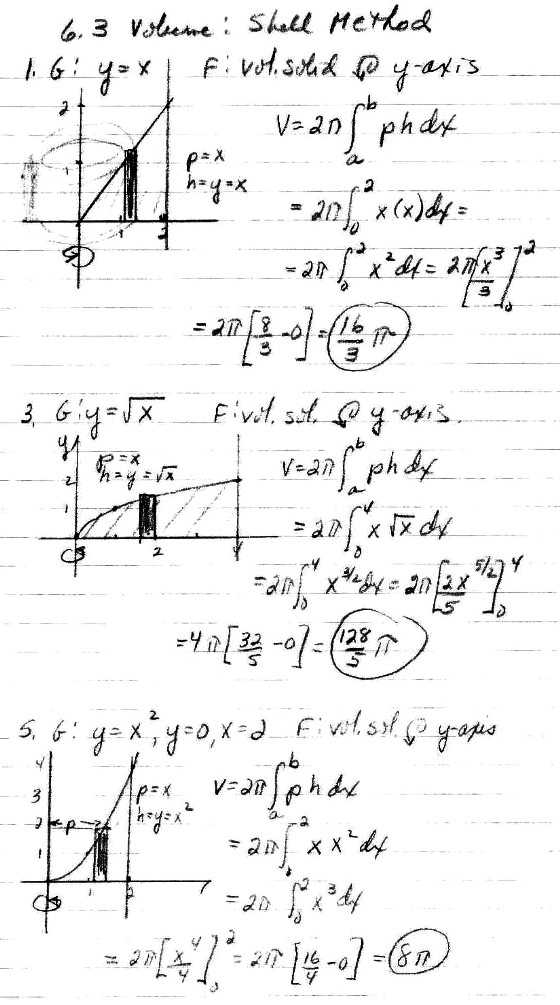 6.3 Volume: Shell Method
1. G: y=x F: vol. solid @ y-axis
2
1
p=x
h=y=x
1 2
V=2π∫_a^b ph dx
=2π∫_0^2 x(x)dx=
=2π∫_0^2 x²dx=2π[x³/3]_0^2
=2π[8/3-0]=16/3 π
3. G: y=√x F: vol. sol. y-axis.
y
p=x
h=y=√x
2
1
2 4
V=2π∫_a^b ph dx
=2π∫_0^4 x√x dx
=2π∫_0^4 x^{3/2}dx=2π[2x^{5/2}/5]_0^4
=4π[32/5-0]=128/5 π
5. G: y=x², y=0, x=2 F: vol. sol. y-axis
4
3
2
1
p
p=x
h=y=x²
1 2
V=2π∫_a^b ph dx
=2π∫_0^2 x x²dx
=2π∫_0^2 x³dx
=2π[x⁴/4]_0^2=2π[16/4-0]=8π